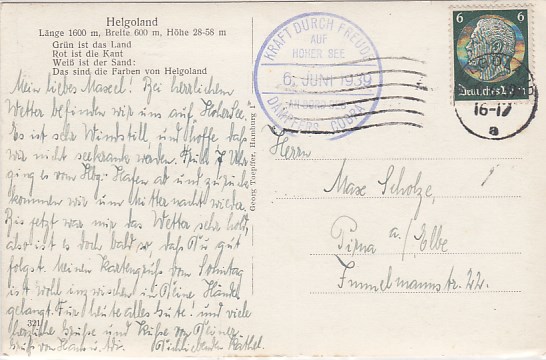 Helgoland
Länge 1600 m, Breite 600 m, Höhe 28-58 m
Grün ist das Land
Rot ist die Kant
Weiß ist der Sand:
Das sind die Farben von Helgoland
Mein liebes Maxel! Bei herrlichem
Wetter befinden wir uns auf Hoher See.
Es ist sehr Windstill, und hoffe daß
wir nicht seekrank werden. Früh 7 Uhr
ging es vom Hbg. Hafen ab und zurück
kommen wir um Mitternacht wieder.
Bis jetzt war mir das Wetter sehr hold,
also ist es doch bald so, daß Du gut
folgst. Meinen Kartengruß vom Sonntag
ist wohl inzwischen in Deine Hände
gelangt. Für heute alles Gute! und viele
herzliche Grüße und Küsse von Deiner
Grüße von Hans u.
Dich liebenden Käthel.
321
Georg Toepffer, Hamburg
KRAFT DURCH FREUDE
AUF
HOHER SEE
6. JUNI 1939
DAMPFERS
6
6
Deutsches Reich
16-17
a
Herrn
Max Scholze,
Pirna a./Elbe
22.